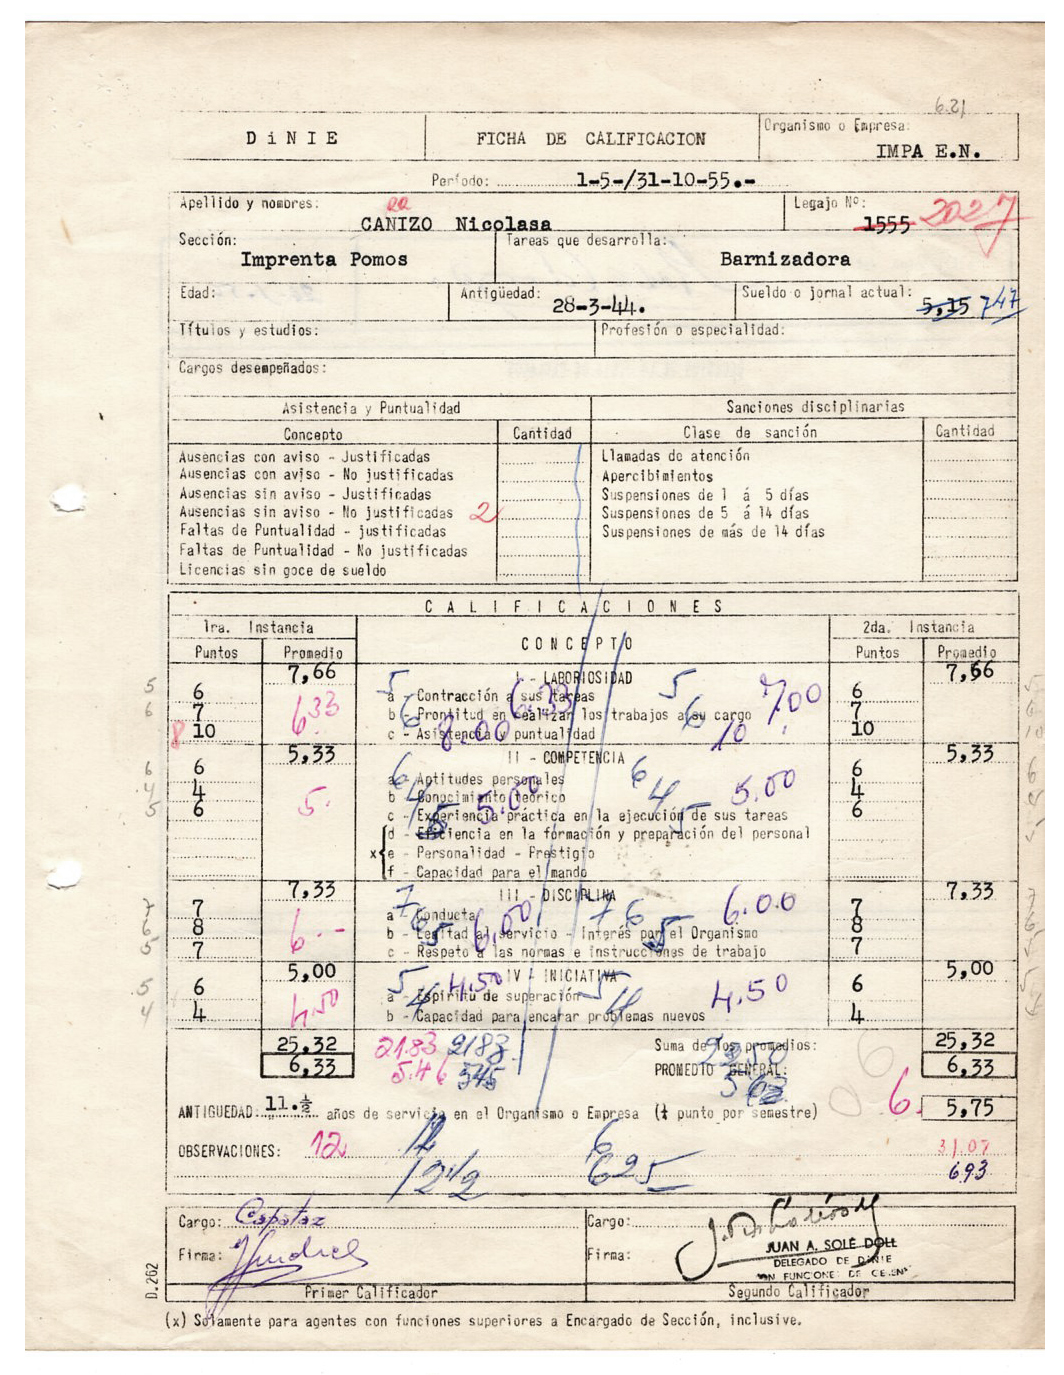 6.21
DiNIE FICHA DE CALIFICACION Organismo o Empresa:
IMPA E.N.
Período: 1-5-/31-10-55.-
Apellido y nombres: Legajo Nº:
CANIZO Nicolasa 1555 2027
Sección: Tareas que desarrolla:
Imprenta Pomos Barnizadora
Edad: Antigüedad: Sueldo o jornal actual:
28-3-44. 5,15 747
Títulos y estudios: Profesión o especialidad:
Cargos desempeñados:
Asistencia y Puntualidad Sanciones disciplinarias
Concepto Cantidad Clase de sanción Cantidad
Ausencias con aviso - Justificadas Llamadas de atención
Ausencias con aviso - No justificadas Apercibimientos
Ausencias sin aviso - Justificadas Suspensiones de 1 á 5 días
Ausencias sin aviso - No justificadas 2 Suspensiones de 5 á 14 días
Faltas de Puntualidad - justificadas Suspensiones de más de 14 días
Faltas de Puntualidad - No justificadas
Licencias sin goce de sueldo
CALIFICACIONES
1ra. Instancia CONCEPTO 2da. Instancia
Puntos Promedio Puntos Promedio
7,66 I - LABORIOSIDAD 7,66
5 6 a - Contracción a sus tareas 5 5 6
6 7 633 b - Prontitud en realizar los trabajos a su cargo 6 6.33 6 700 7
8 10 c - Asistencia y puntualidad 8.00 10 10
5,33 II - COMPETENCIA 5,33
6 6 a - Aptitudes personales 6 6 6
4 4 5. b - Conocimiento teórico 4 5.00 4 5.00 4
5 6 c - Experiencia práctica en la ejecución de sus tareas 5 5 6
d - Eficiencia en la formación y preparación del personal
x e - Personalidad - Prestigio
f - Capacidad para el mando
7,33 III - DISCIPLINA 7,33
7 7 a - Conducta 7 7 7
6 8 6.- b - Lealtad al servicio - Interés por el Organismo 6 6,00 6 6.00 8
5 7 c - Respeto a las normas e instrucciones de trabajo 5 5 7
5,00 IV - INICIATIVA 5,00
5 6 a - Espíritu de superación 5 4.50 5 4.50 6
4 4 4.50 b - Capacidad para encarar problemas nuevos 4 4 4
25,32 21.83 2183 Suma de los promedios: 2250 25,32
6,33 5.46 545 PROMEDIO GENERAL: 6,33
ANTIGUEDAD: 11.½ años de servicio en el Organismo o Empresa (¼ punto por semestre) 6. 5,75
OBSERVACIONES: 12 12 6 31.07
12 1/2 625 693
Cargo: Capataz Cargo:
Firma: Firma: JUAN A. SOLÉ DOLL
DELEGADO DE DINIE
EN FUNCIONES DE
Primer Calificador Segundo Calificador
D.262
(x) Solamente para agentes con funciones superiores a Encargado de Sección, inclusive.